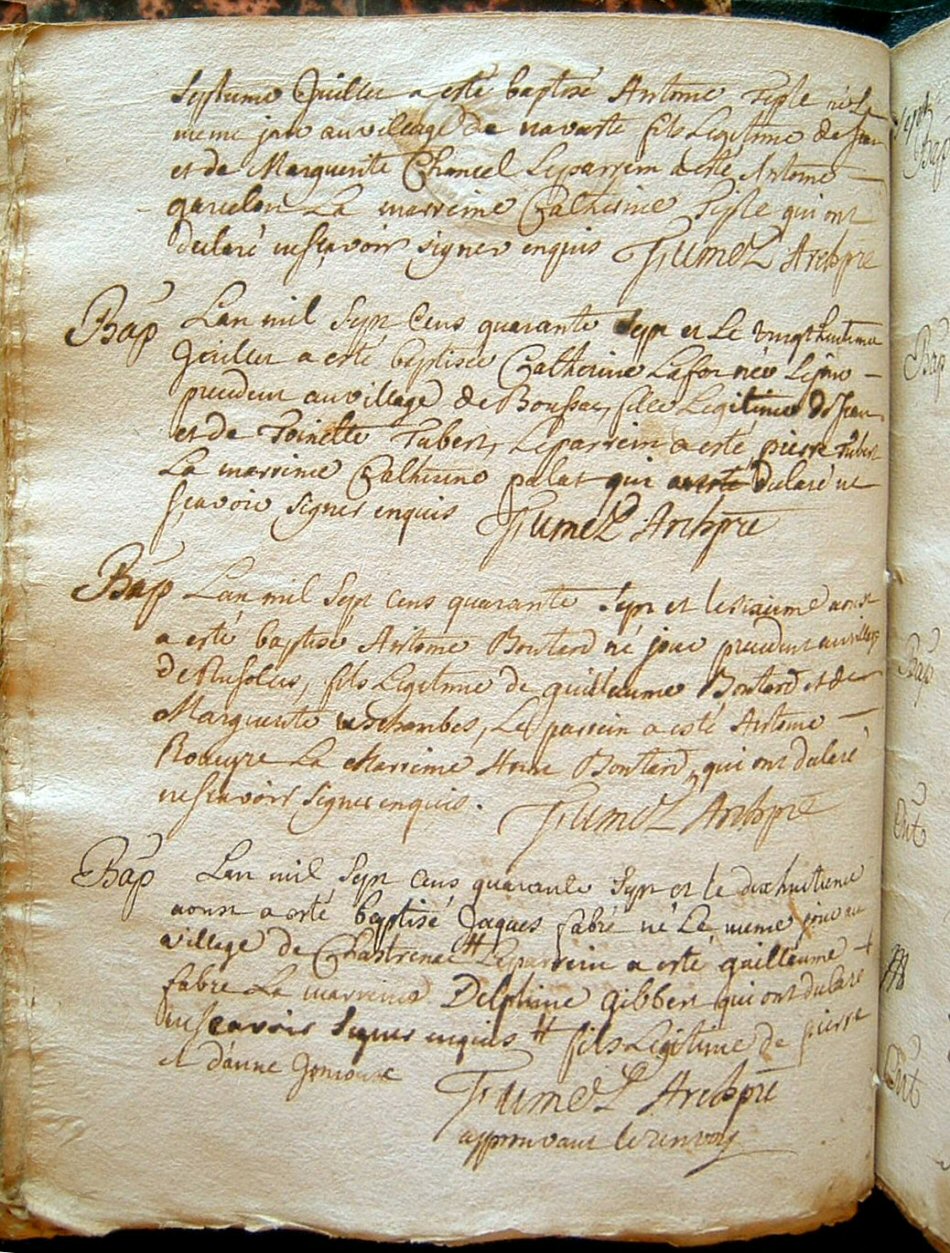 Septieme Juillet a esté baptisé Antoine Tiple né le
meme jour au village de navaste fils Legitime de Jean
et de Marguerite Chancel Leparrein a esté Antoine
garcelon La marreine Catherine Tiple qui ont
declaré ne scavoir signer enquis Fumel Archpre
Bap Lan mil Sept Cens quarante Sept et Le vingthuitieme
Jeuillet a esté baptisée Catherine Lafon née Lejour
precedent au village de Boussac, fille Legitime de Jean
et de Toinette Tubert, Leparrein a esté pierre Tubert
La marreine Catherine palat qui declaré ne
scavoir signer enquis Fumel Archpre
Bap Lan mil Sept Cens quarante Sept et le aoust
a esté baptisé Antoine Boutard né jour precedent au village
de fils Legitime de guillaume Boutard et de
Marguerite deschambes, Le parrein a esté Antoine
Roueyre La Marreine Anne Boutard, qui ont declaré
ne scavoir signer enquis. Fumel Archpre
Bap Lan mil Sept Cens quarante Sept et le dixhuitieme
aoust a esté baptisé Jaques fabre né Le meme jour au
village de Chastrenac # Leparrein a esté guillaume +
fabre La marreine Delphine gibbert qui ont declaré
ne scavoir signer enquis # fils Legitime de pierre
et d'anne
Fumel Archpre
approuvant le renvoy
Bap
Bap
Ent